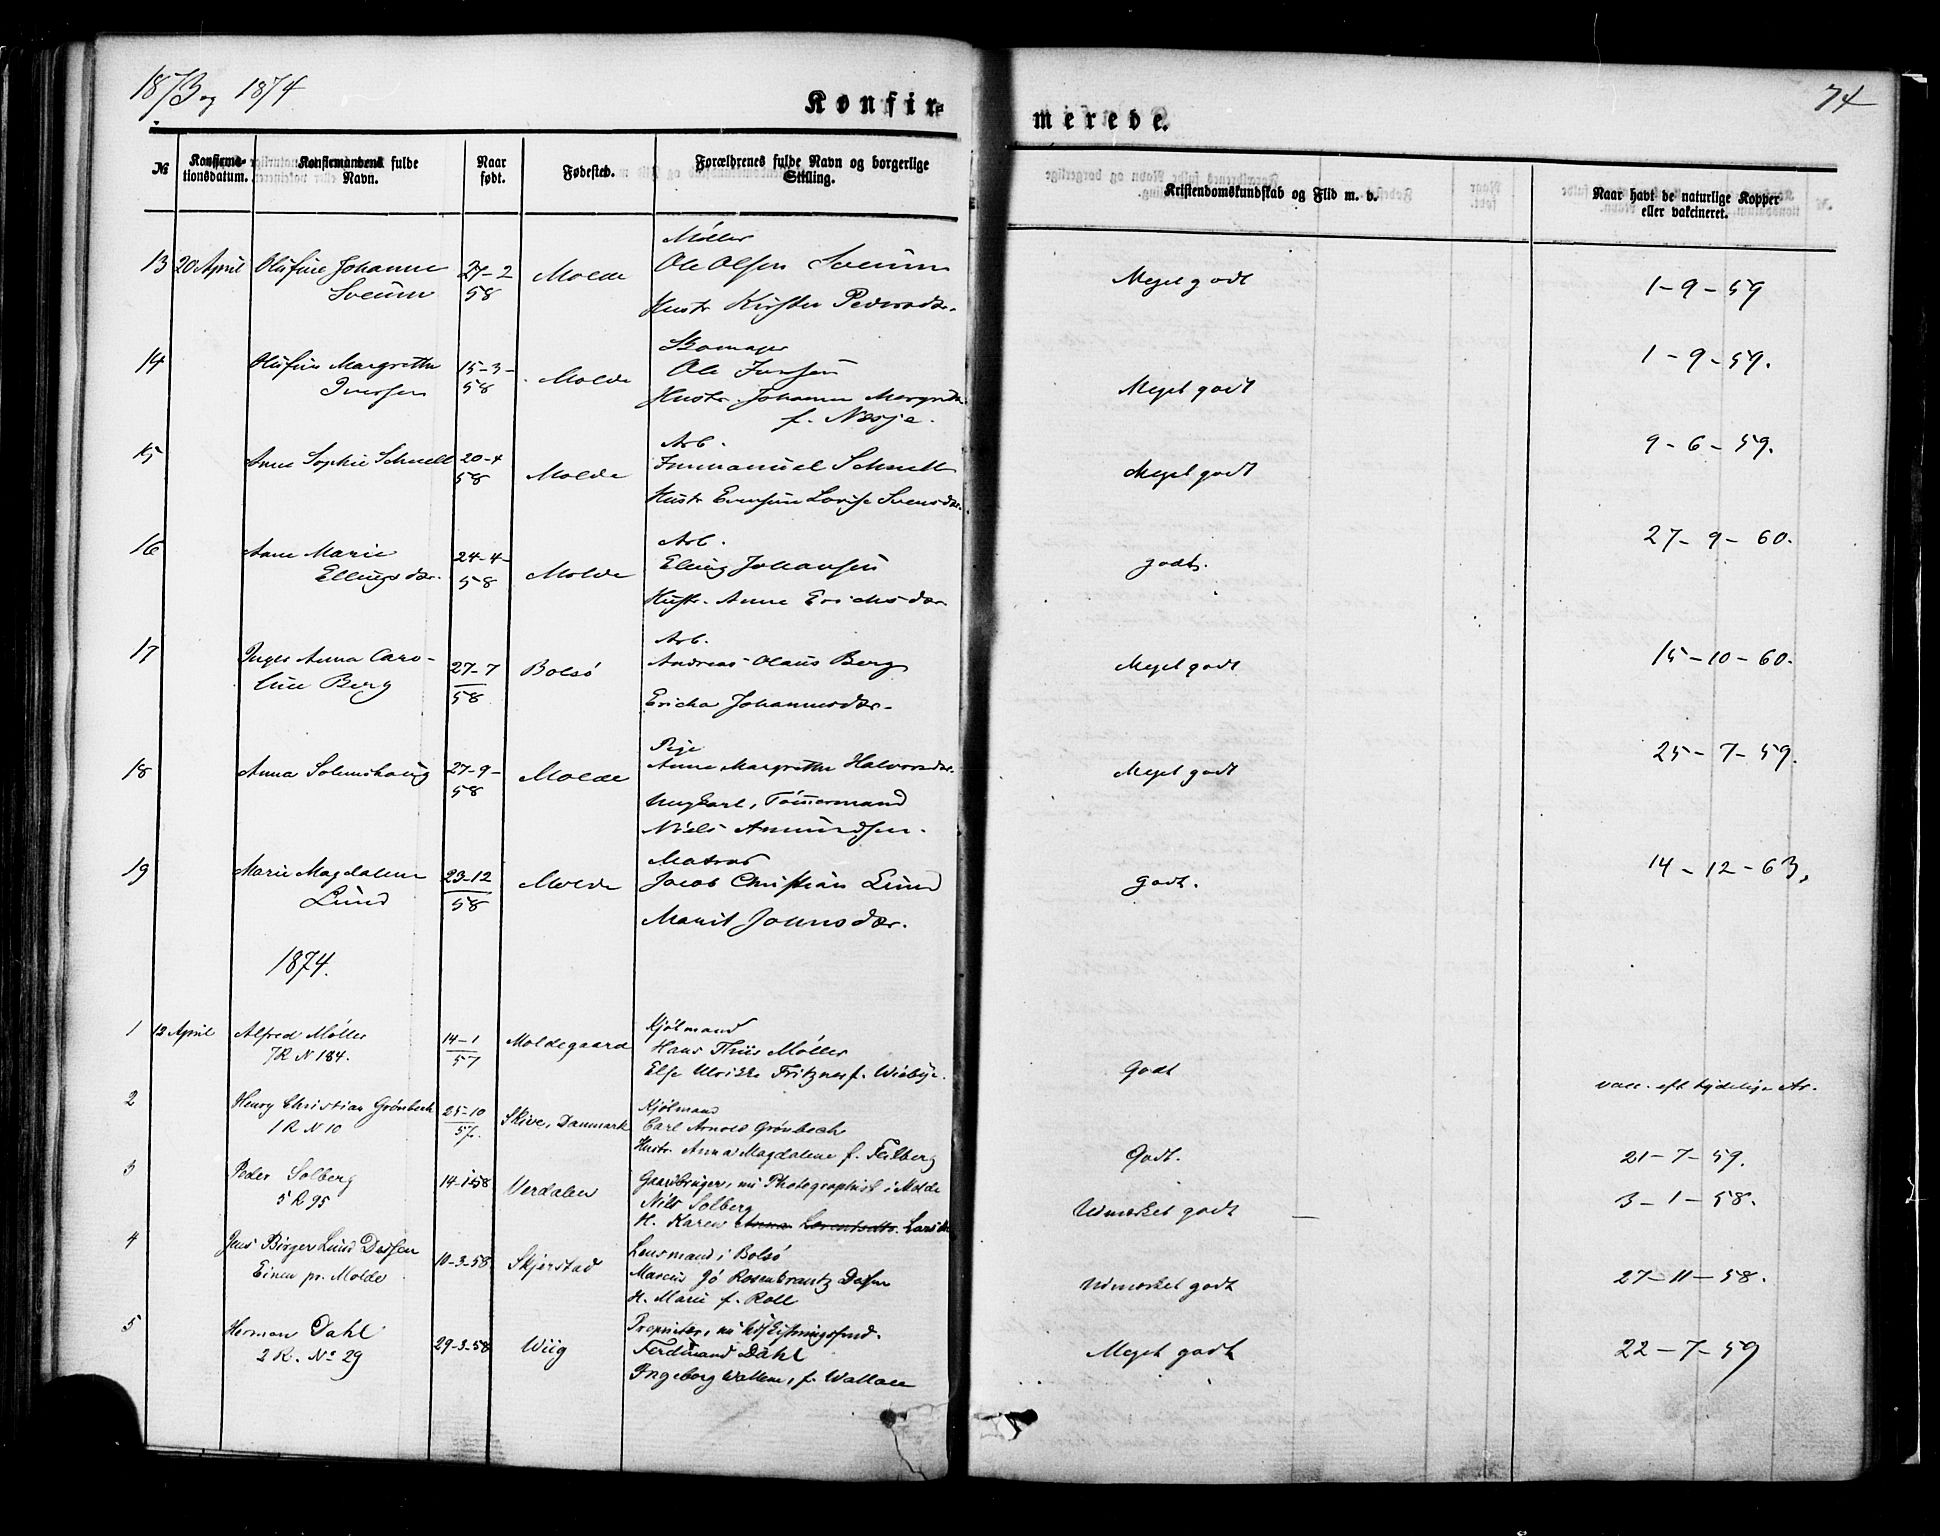 1873 og 1874
74
Konfir-
merede.
№
Konfirma-
tionsdatum.
Konfirmandens fulde
Navn.
Naar
født.
Fødested.
Forældrenes fulde Navn og borgerlige
Stilling.
Kristendomskundskab og Flid m. v.
Naar havt de naturlige Kopper
eller vakcineret.
Møller
13 20 April Olufine Johanne 27-2 Molde Ole Olsen Sveum Meget godt 1-9-59
Sveum 58
Hustr Kirsten Pedersdtr.
Skomager
14 Olufine Margrethe 15-3- Molde Ole Iversen Meget godt 1-9-59.
Iversen 58 Hustr. Johanne Margrethe
f. Nesje.
Arb.
15 Anne Sophie Schnell 20-4 Molde Immanuel Schnell Meget godt 9-6-59.
58 Hustr Lovise Svensdtr.
Arb.
16 Anne Marie 24-4- Molde Elling Johansen godt. 27-9-60.
Ellingsdtr. 58
Hustr. Anne Erichsdtr
Arb.
17 Inger Anna Caro- 27-7 Bolsø Andreas Olaus Berg Meget godt 15-10-60.
line Berg 58
Ericka Johannesdtr.
Pige
18 Anna Solemshoug 27-9- Molde Anne Margrethe Halvorsdtr. Meget godt 25-7-59.
58 Ungkarl, Tømmermand
Niels Amundsen.
Matros
19 Marie Magdalene 23-12 Molde Jacob Christian Lund godt. 14-12-63,
Lund 58
Marit Johnsdtr.
1874.
Kjøbmand
1 12 April Alfred Møller 14-1 Moldegaard Hans Thiis Møller Godt vacc. eft tydelige Ar.
7 R N 184. 57 Else Ulrikke Fritzner f. Wiebye.
2 Henry Christian Grønbech 25-10 Skive, Danmark Kjøbmand
1 R N 10 57. Carl Arnold Grønbech
Hustr. Anna Magdalene f. Feilberg Godt. 21-7-59.
3 Peder Solberg 14-1-58 Verdalen Gaardbruger, nu Photographist i Molde
5 R 95 Nils Solberg Udmærket godt — 3-1-58.
H. Karen Anna Lorentsdtr.
4 Jens Birger Lund Dessen 10-3-58 Skjerstad Lensmand i Bolsø
Einen pr. Molde Marcus Gø Rosenkrantz Dessen Udmærket godt 27-11-58.
H. Marie f. Roll
5 Herman Dahl 29-3-58 Wiig Proprietær, nu
2 R. No 29 Ferdinand Dahl Meget godt 22-7-59
Ingeborg f. Wallace